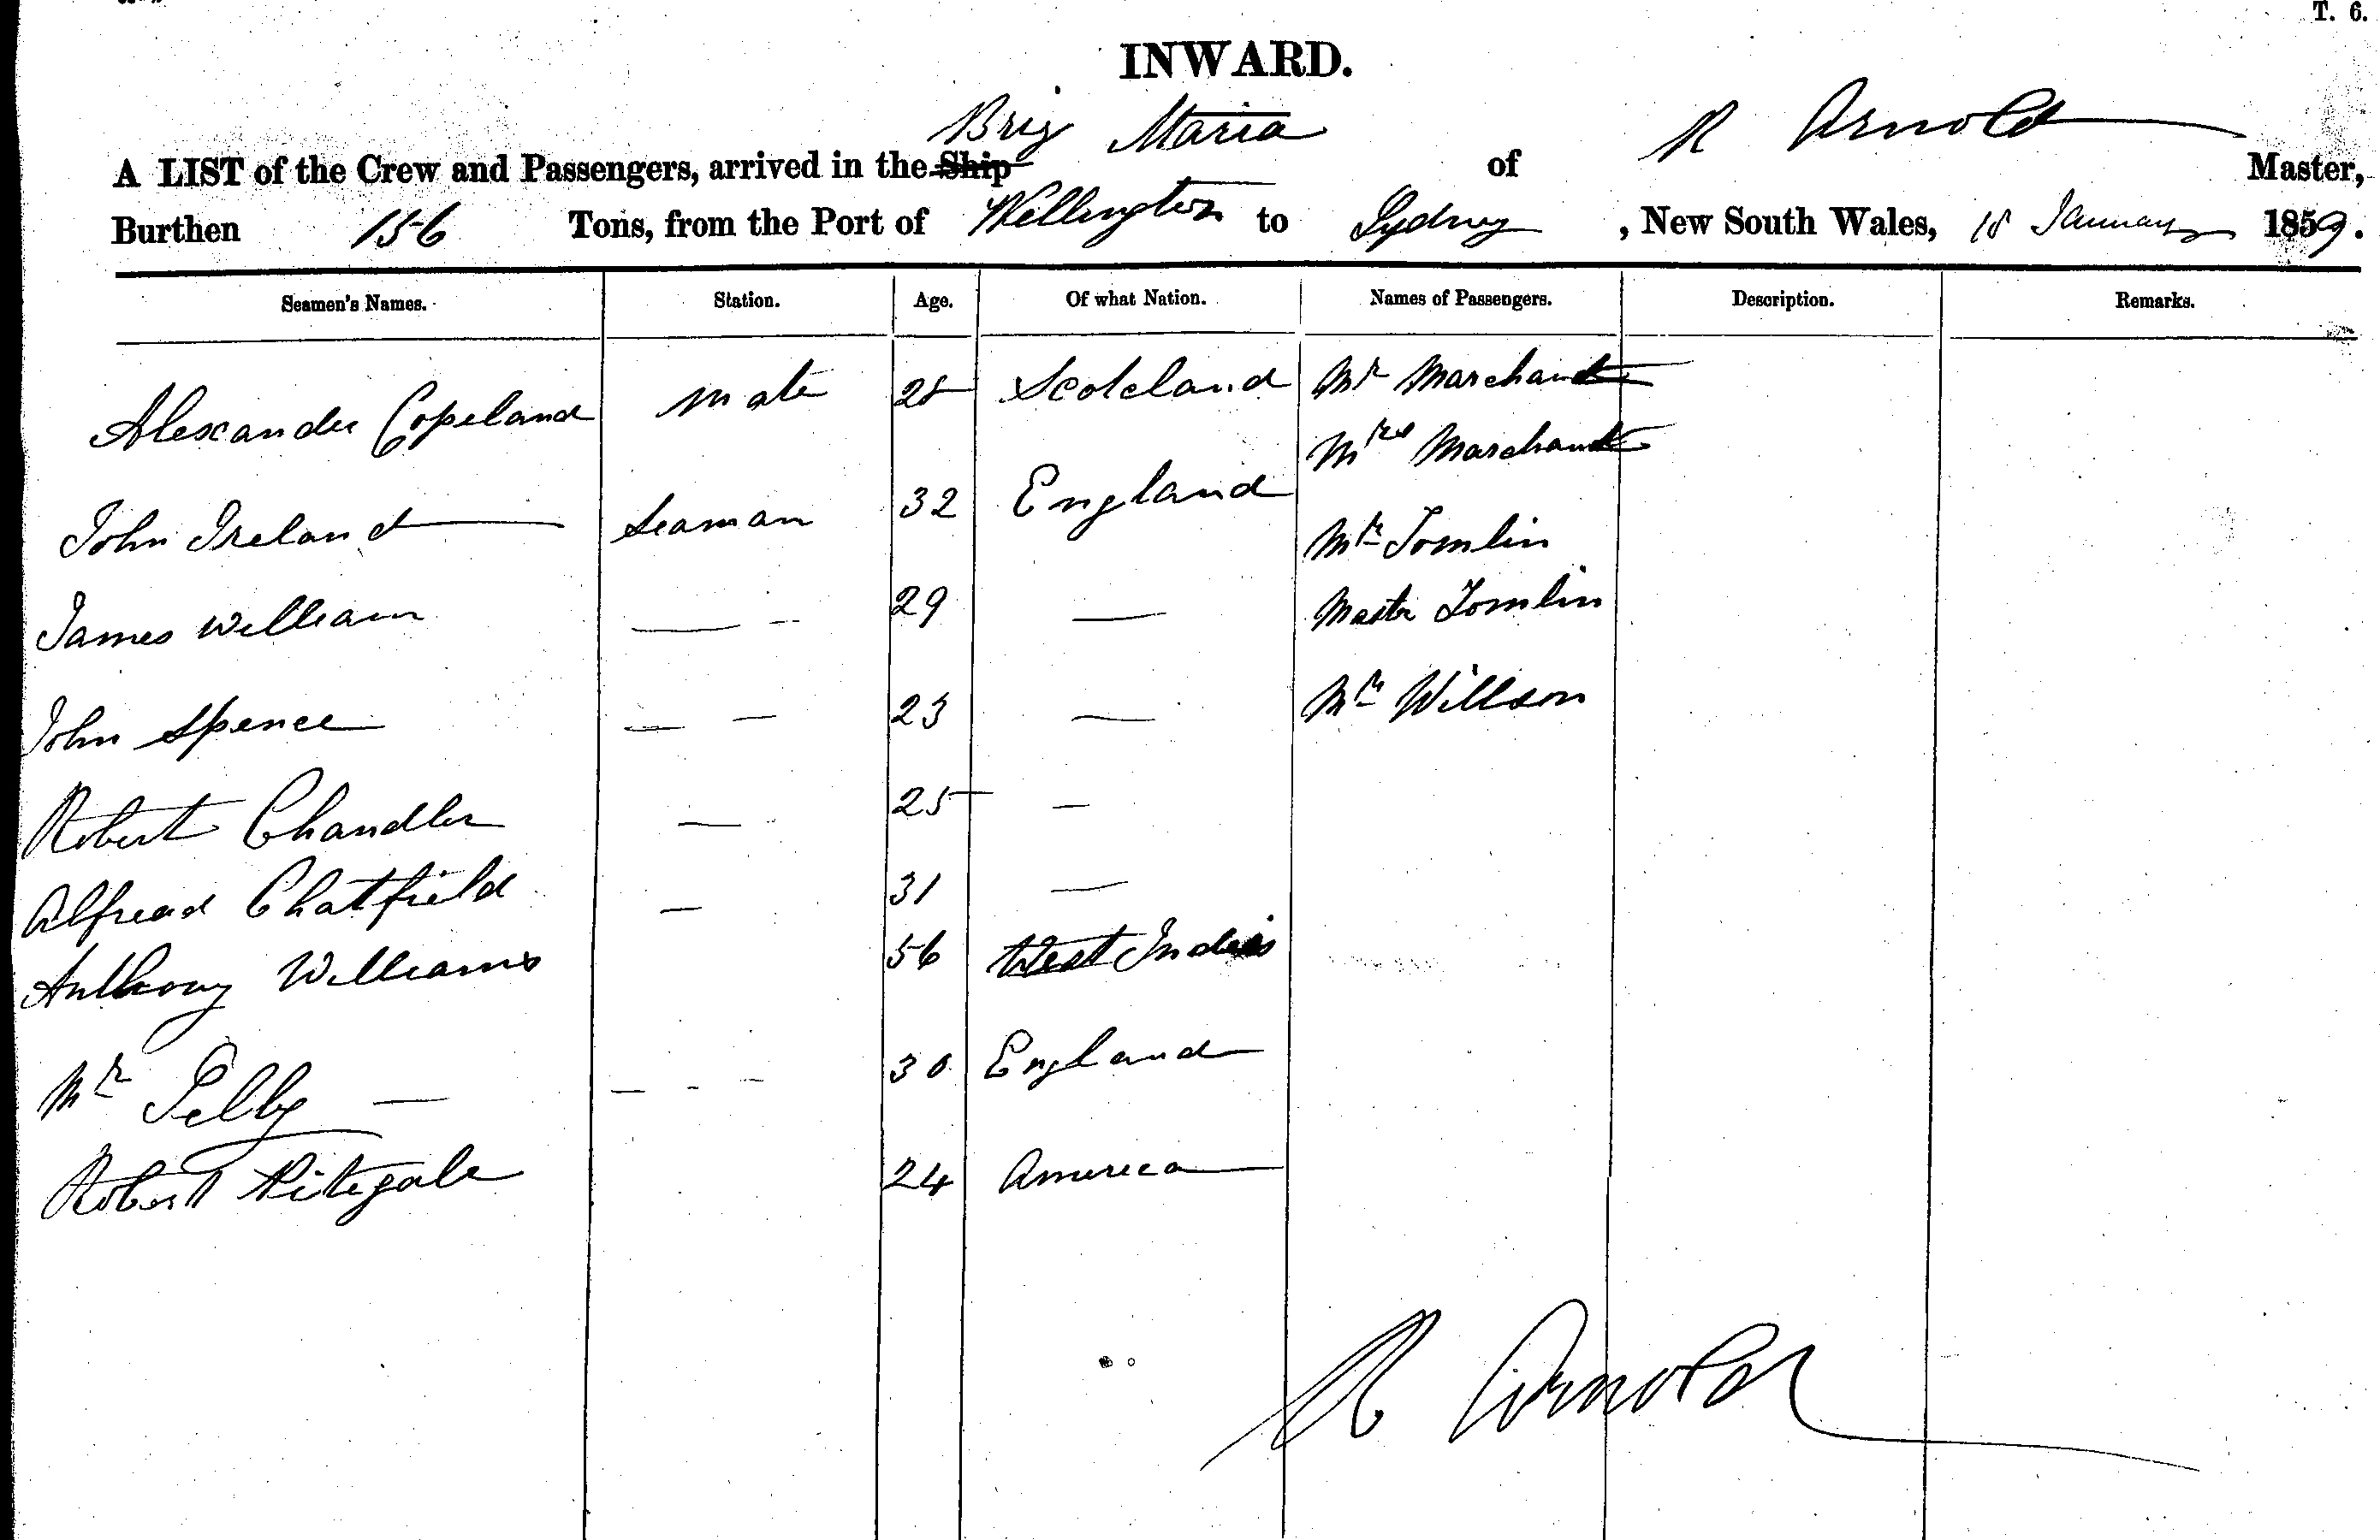 T. 6.
INWARD.
Brig Maria R Arnold
A LIST of the Crew and Passengers, arrived in the Ship of Master,
Burthen 156 Tons, from the Port of Wellington to Sydney , New South Wales, 18 January 1859.
Seamen's Names. Station. Age. Of what Nation. Names of Passengers. Description. Remarks.
Alexander Copeland Mate 25 Scotcland Mr Marchant
Mrs Marchant
John Ireland Seaman 32 England Mr Tomlin
James William — 29 — Master Tomlin
John Spence — — 23 — Mr Willson
Robert Chandler — 25 —
Alfread Chatfield — 31 —
Anthony Williams 56 West Indies
Mr — - - - 30 England
Robert 24 America
R Arnold